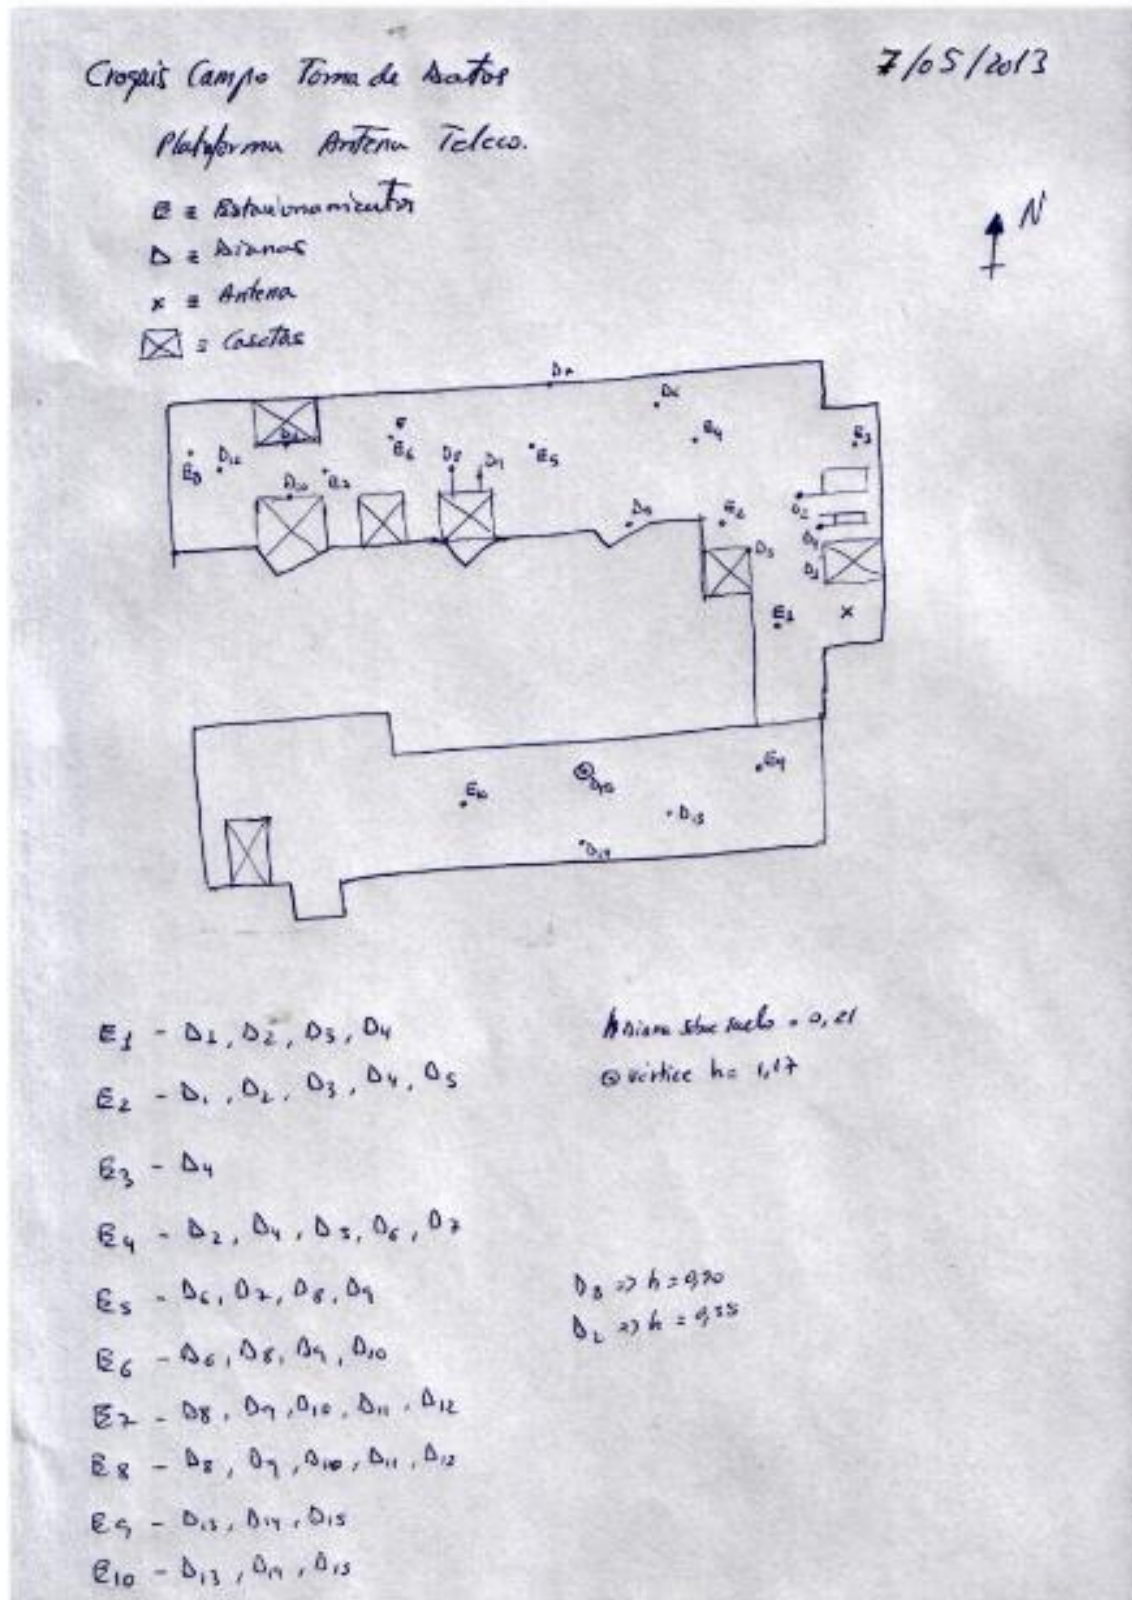 Croquis Campo Toma de Datos
7/05/2013
Plataforma Antena Teleco.
E = Estacionamientos
D = Dianas
x = Antena
= Casetas
N
D7
D6
E4
E3
E8
D12
E6
D8
D9
E5
D10
E7
E2
D2
D5
D3
E1
x
E9
E10
D13
D14
E1 - D1, D2, D3, D4
E2 - D1, D2, D3, D4, D5
E3 - D4
E4 - D2, D4, D5, D6, D7
E5 - D6, D7, D8, D9
E6 - D6, D8, D9, D10
E7 - D8, D9, D10, D11, D12
E8 - D8, D9, D10, D11, D12
E9 - D13, D14, D15
E10 - D13, D14, D15
h Diana sobre suelo = 0,21
vértice h = 1,17